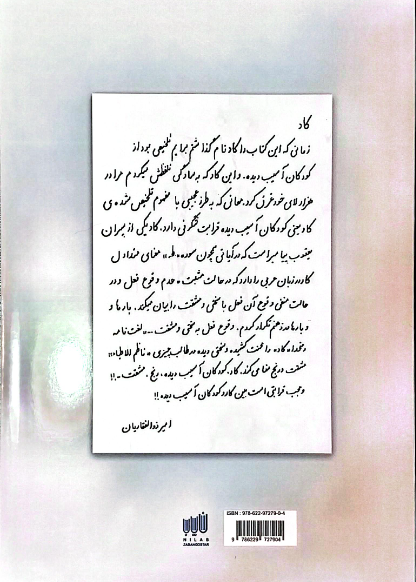 کاد
زمانی که این کتاب را کاد نام گذاشتم برایم تلخیص بود از
کودکان آسیب دیده. و این کاد که به سادگی تلفظش میکردم مرا در
هزار لای خود غرق کرد. جهانی که به طرز عجیبی با مفهوم تلخیص شده ی
کاد یعنی کودکان آسیب دیده قرابت شگرفی دارد. کاد یکی از پسران
یعقوب پیامبر است که در آیاتی چون سوره «طه» معنای متداول
کاد در زبان عربی را دارد که در حالت مثبت «عدم وقوع فعل و در
حالت منفی وقوع آن فعل با سختی و مشقت را بیان میکند. بارها و
بارها در ذهنم تکرار کردم. وقوع فعل به سختی و مشقت ... لغت نامه
دهخدا، کاد را محنت کشیده و سختی دیده در طلب چیزی «ناظم الاطباء»
مشقت و رنج معنا می کند. کاد، کودکان آسیب دیده، رنج، مشقت ..!!
و عجب قرابتی است بین کاد و کودکان آسیب دیده !!
امیر ذوالفقاریان
نیلاب
NILAB
ZABANGOSTAR
ISBN: 978-622-97279-0-4
9 786229 727904